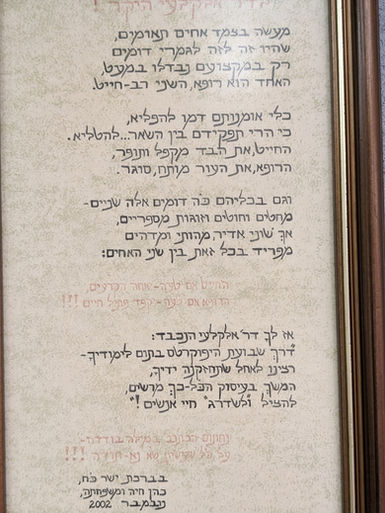 לדר׳ אלקלעי היקר !
מעשה בצמד אחים תאומים,
שהיו זה לזה לגמרי דומים
רק במקצועם נבדלו במעט,
האחד הוא רופא, השני רב-חייט.
כלי אומנותם דמו להפליא,
כי הרי תפקידם בין השאר...להטליא.
החייט, את הבד מקפל ותופר,
הרופא, את העור מותח, סוגר.
וגם בכליהם כה דומים אלה שניים-
מחטים וחוטים וזוגות מספריים,
אך שוני אדיר, מהותי ומדהים
מפריד בכל זאת בין שני האחים:
החייט אם טעה-
הרופא אם טעה- קפד פתיל חיים !!!
אז לך דר׳ אלקלעי הנכבד:
"דרך שבועת היפוקרטס בתום לימודיך-
רצינו לאחל שתחזקנה ידיך,
המשך בעיסוק הכל-כך מרשים,
להציל "ולשדרג" חיי אנשים !"
במילה בודדה-
על כל שעשית
בברכת ישר כח,
כהן חיה ומשפחתה,
נובמבר 2002